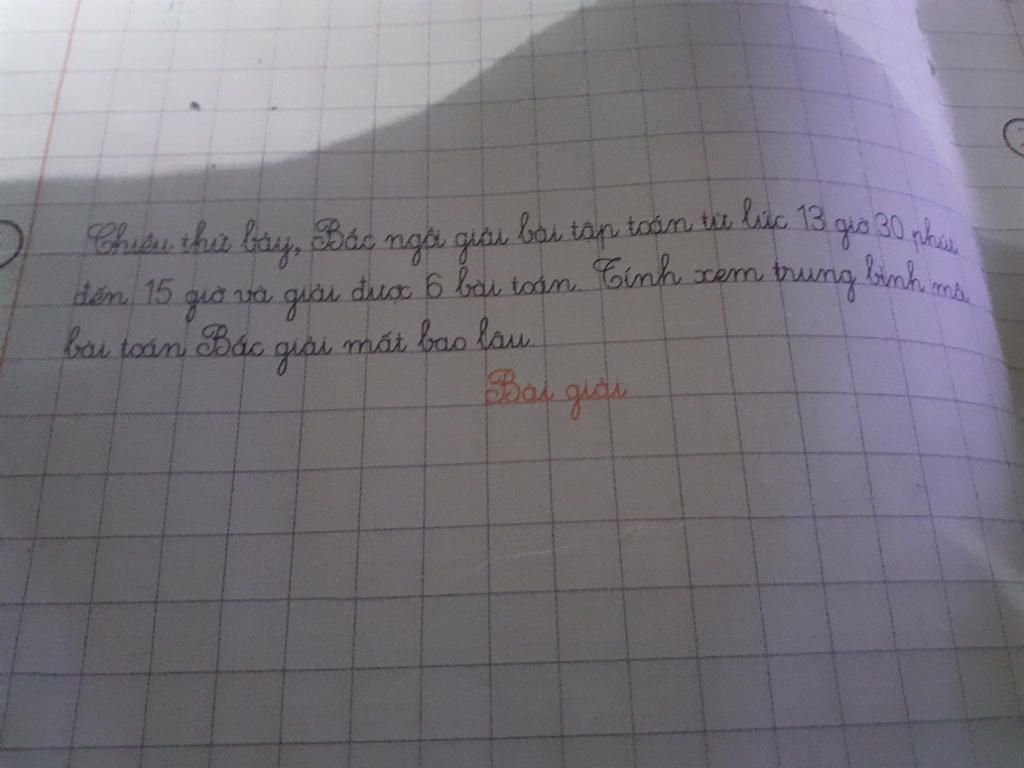 Chiều thứ bảy, Bắc ngồi giải bài tập toán từ lúc 13 giờ 30 phút
đến 15 giờ và giải được 6 bài toán. Tính xem trung bình mỗi
bài toán Bắc giải mất bao lâu.
Bài giải